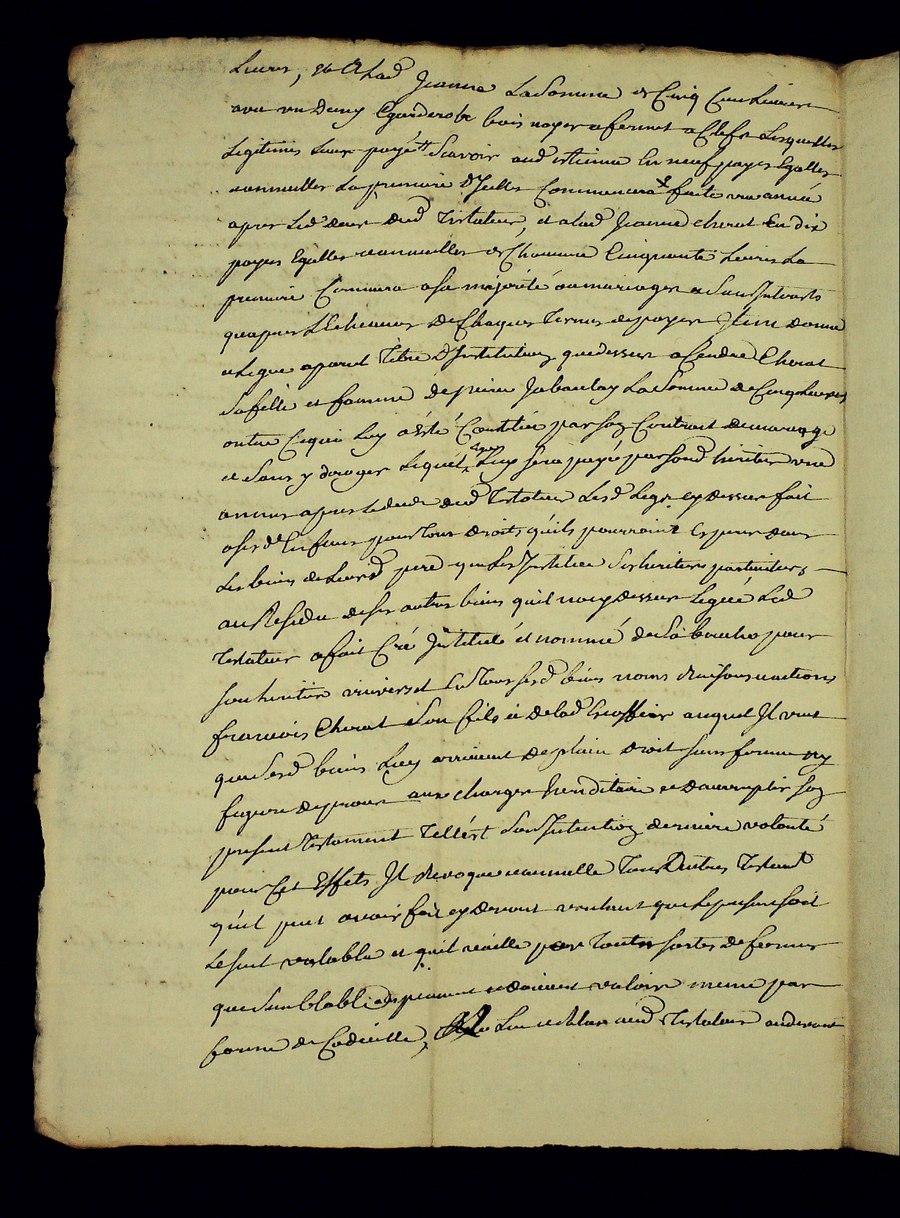 Livres, et a lad Jeanne la somme de Cinq Cent livres
avec un demy garderobe bois noyer a fermet a Clefs Lesquelles
Legitimes Leurs payé Scavoir aud estienne En neuf payes Egalles
annuelles La premiere d'Icelles Commencera faite une année
apres Led deces dud Testateur, et a lad Jeanne cherat En dix
payes Egalles annuelles de Chacune Cinquante Livres La
premiere Comm a sa majorité ou mariage et sans Interests
qu'apres L'Echeance de Chaque Terme de payes Item donne
et Legue a pareil Titre d'Institution que dessus a Cherat
sa fille et femme de pierre Jabaulay La Somme de Cinq Livres
outre Ce qui Luy a été Constitué par son Contrat de mariage
et Sans y deroger Lequel Legs Luy sera payé par sond heritier une
année apres Le deces dud Testateur Lesd Legs cy dessus fait
a sesd Enfans pour Tous droits qu'ils pourroint Esperer dans
Les biens de Leurd pere que Les Institue Ses heritiers particuliers
au Residu de ses autres biens qu'il n'a cy dessus Legué Led
Testateur a fait Créé Institué et nommé de Sa bouche pour
son heritier universel En Tous sesd biens noms droits raisons actions
francois Cherat Son fils et de lad auquel Il veut
que Sesd biens Luy arrivent de plain droit sans forme ny
figure de proces aux charges hereditaire et d'accomplir son
present Testament Telle est Son Intention derniere volonté
pour Cet Effets Il revoque et annulle Tous Autres Testament
qu'il peut avoir fait cy devant voulant que Le present soit
Le seul valable et qu'il vaille par Toutes sortes de formes
que Semblables peuvent et doivent valoir meme par
forme de Codicille, Lu et relu aud Testateur au devant